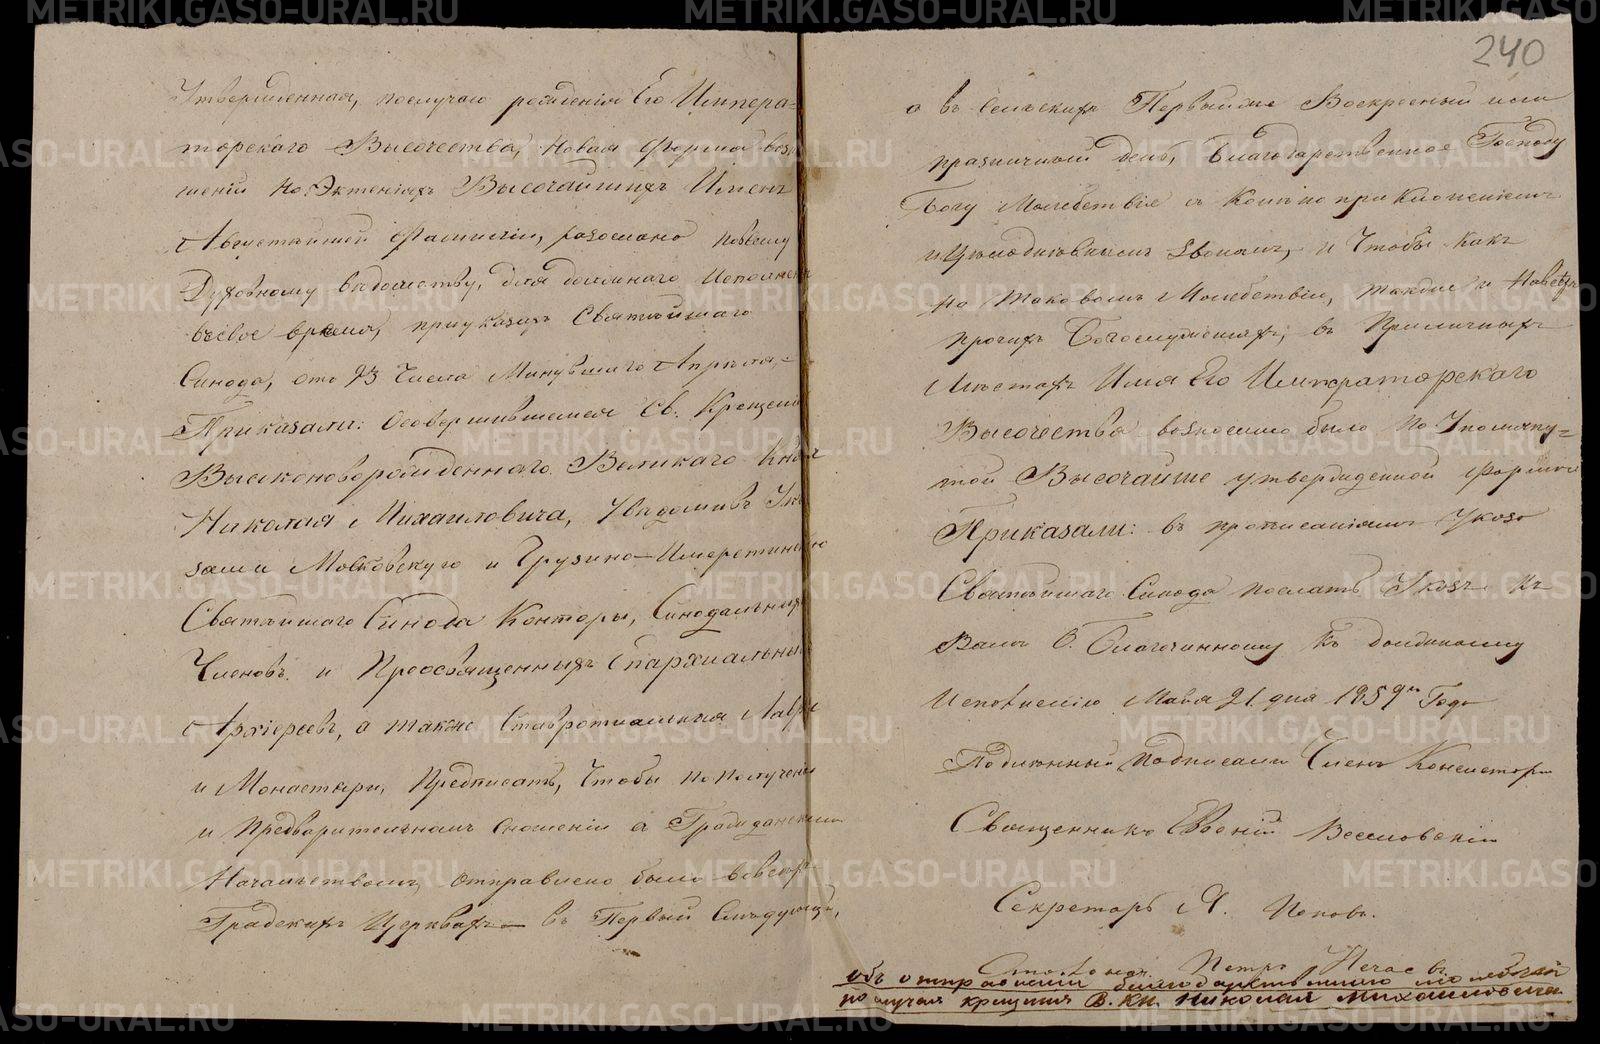 Утвержденная, послучаю рожденія Его Импера=
торскаго Высочества, Новая форма возно
шеній на Эктеніяхъ Высочайшихъ Именъ
Августѣйшей Фамиліи, разослана повсему
Духовному вѣдомству, для должнаго Исполнен
въсвое время, приуказѣ Святѣйшаго
Синода, отъ 23 Числа Минувшаго Апрѣля,=
Приказали: Осовершившемся Св. Крещеніи
Высоконоворожденнаго Великаго Князя
Николая Михаиловича, Увѣдомивъ Ука
зами Московскую и Грузино-Имеретинскую
Святѣйшаго Синода Конторы, Синодальныхъ
Членовъ и Преосвященныхъ Епархіальныхъ
Архіереевъ, а также Ставропигіальныя Лавры
и Монастыри, Предписать, Чтобы пополученіи
и Предварительномъ сношеніи съ Гражданскимъ
Начальствомъ, отправлено было вовсѣхъ
Градскихъ Церквахъ въ Первый Слѣдующій,
240
а въ Сельскихъ Первый же Воскресный или
праздничный день, Благодарственное Господу
Богу Молебствіе съ Колѣнопреклоненіемъ
и Цѣлодневнымъ звономъ, и Чтобы какъ
на таковомъ Молебствіи, такъ и навсѣхъ
прочихъ Богослуженіяхъ, въ Приличныхъ
Мѣстахъ Имя Его Императорскаго
Высочества возносимо было по Упомяну=
той Высочайше утвержденной формѣ
Приказали: въ прописаніемъ Указа
Святѣйшаго Синода послать Указъ къ
Вамъ О. Благочинному къ должному
Исполненію Мая 21 дня 1859го Года
Подлинный подписали Членъ Консисторіи
Священникъ Евгеній Веселовскій
Секретарь А. Поповъ.
Петръ
объ отправленіи благодарственнаго молебствія
по случаю крещенія В. Кн. Николая Михаиловича
METRIKI.GASO-URAL.RU